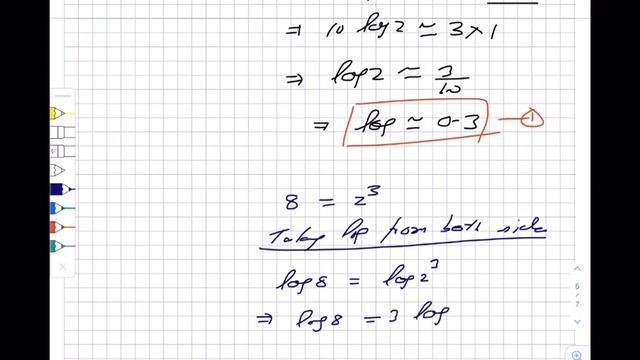 ⇒ 10 log 2 ≃ 3 × 1
⇒ log 2 ≃ 3/10
⇒ log ≃ 0-3 — ①
8 = 2³
Taking log from both side
log 8 = log 2³
⇒ log 8 = 3 log
5
/
7